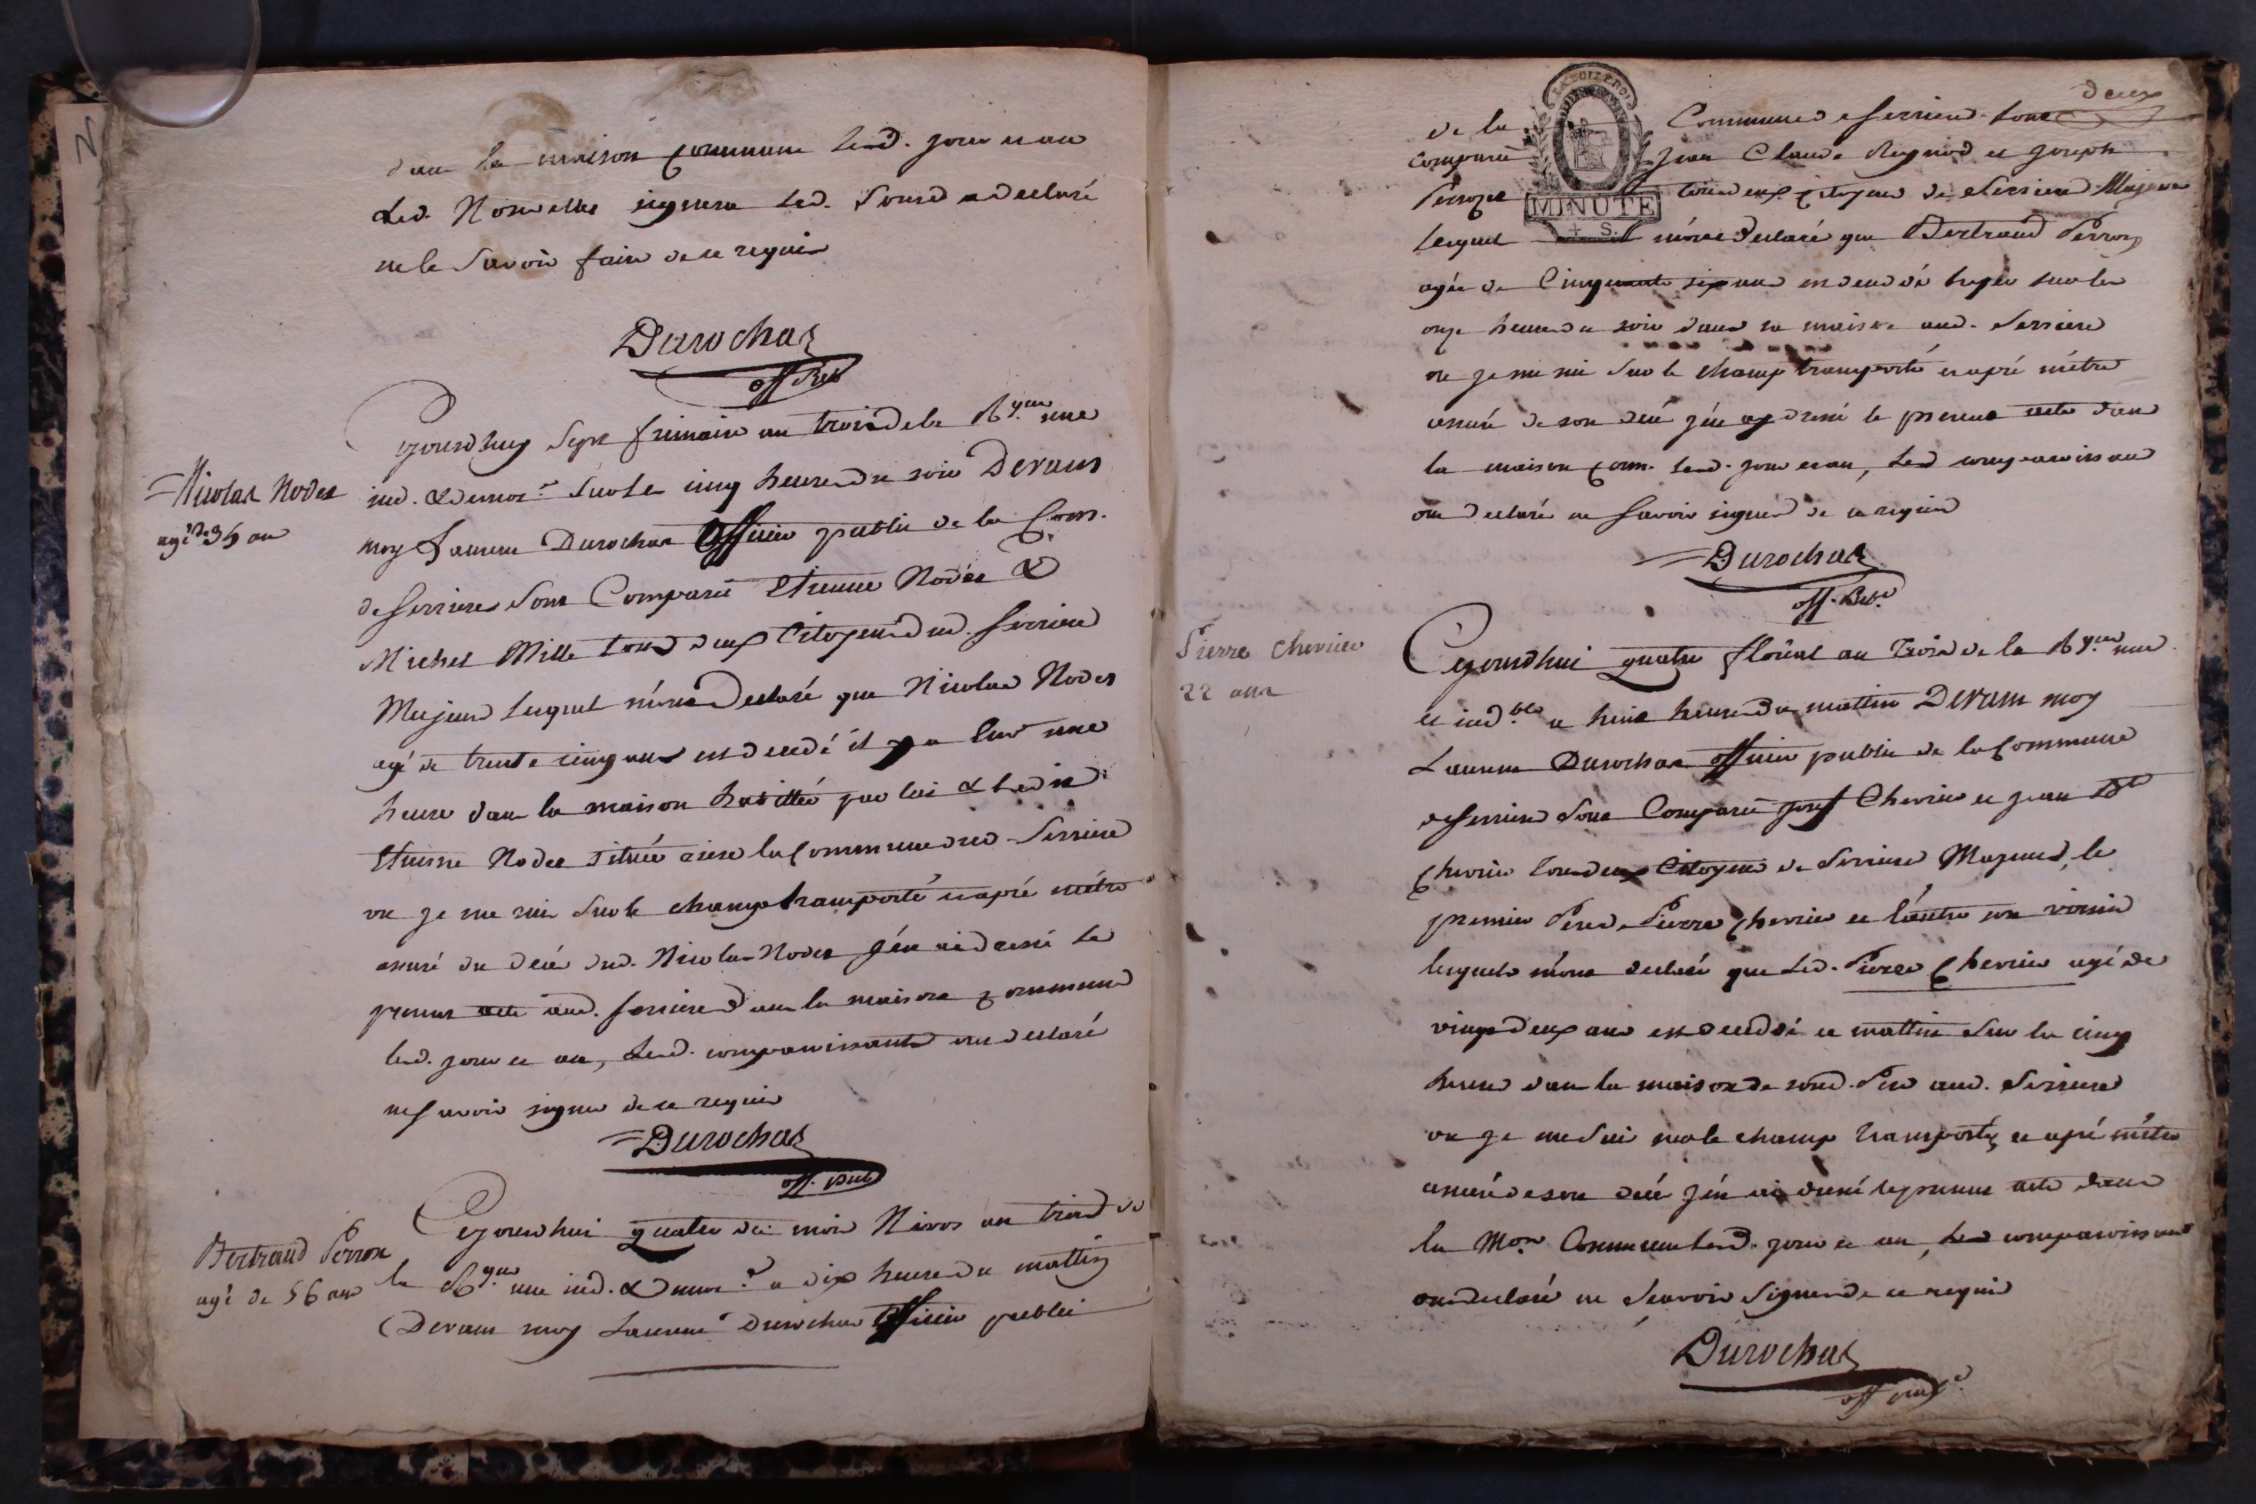 2
dans la maison commune lesd. jour et an
Led. Nouvellet signera led. Sourd a declaré
ne le savoir faire de ce requis
Durochat
off. Pub
Cejourdhuy sept frimaire an trois de la Rque. une
Nicolas Nodet
agé de 35 an
ind. & democ. sur les cinq heures du soir Devant
moy Laurent Durochat Officier public de la Com.
de Serriere sont Comparû Etienne Nodet &
Michel Mille tous deux Citoyens dud. Serriere
Majeurs lesquel m'ont Declaré que Nicolas Nodet
agé de trente cinq ans est decedé il y a une
heure dans la maison habittée par lui & led.
Etienne Nodet située riere la Commune dud. Serriere
ou je me suis sur le champ transporté et apré m'être
assuré du decé dud. Nicolas Nodet j'en ai dressé le
present acte aud. Serriere dans la maison commune
lesd. jour et an, lesd. comparoissants ont declaré
ne savoir signer de ce requis
Durochat
off. Pub
Bertrand Perron
agé de 56 ans
Cejourdhui quatre du mois Nivos an trois de
la Rque. une ind. & democ. a dix heures du mattin
Devant moy Laurent Durochat Officier public
deux
MINUTE
de la Commune de Serriere sont
comparu Jean Claude Reynod et Joseph
Perrozet tous deux Citoyens de Serriere Majeurs
lesquel m'ont declaré que Bertrand Perron
agée de Cinquante six ans est decedé hyer sur les
onze heures du soir dans sa maison aud. Serriere
ou je me sui sur le champ transporté et apré m'être
assuré de son decé j'en ay dressé le present acte dans
la maison com. lesd. jour et an, lesd comparoissans
ont declaré ne savoir signer de ce requis
Durochat
off. Pub.
Pierre Chevrier
22 ans
Cejourdhui quatre floréal an trois de la Rque. une
et ind.ble a huit heures du mattin Devant moy
Laurent Durochat officier public de la Commune
de Serriere sont Comparû Chevrier et jean
Chevrier tous deux Citoyens de Serriere Majeurs, le
premier Pere de Pierre Chevrier et l'autre son voisin
lesquels m'ont declaré que led. Pierre Chevrier agé de
vingt deux ans est decedé ce mattin sur les cinq
heures dans la maison de sond. Pere aud. Serriere
ou je me sui sur le champ transporté et apré m'etre
assuré de son decé j'en ai dressé le present acte dans
la Mon. Commune lesd. jour et an, lesd comparoissans
ont declaré ne scavoir signer de ce requis
Durochat
off. pub.